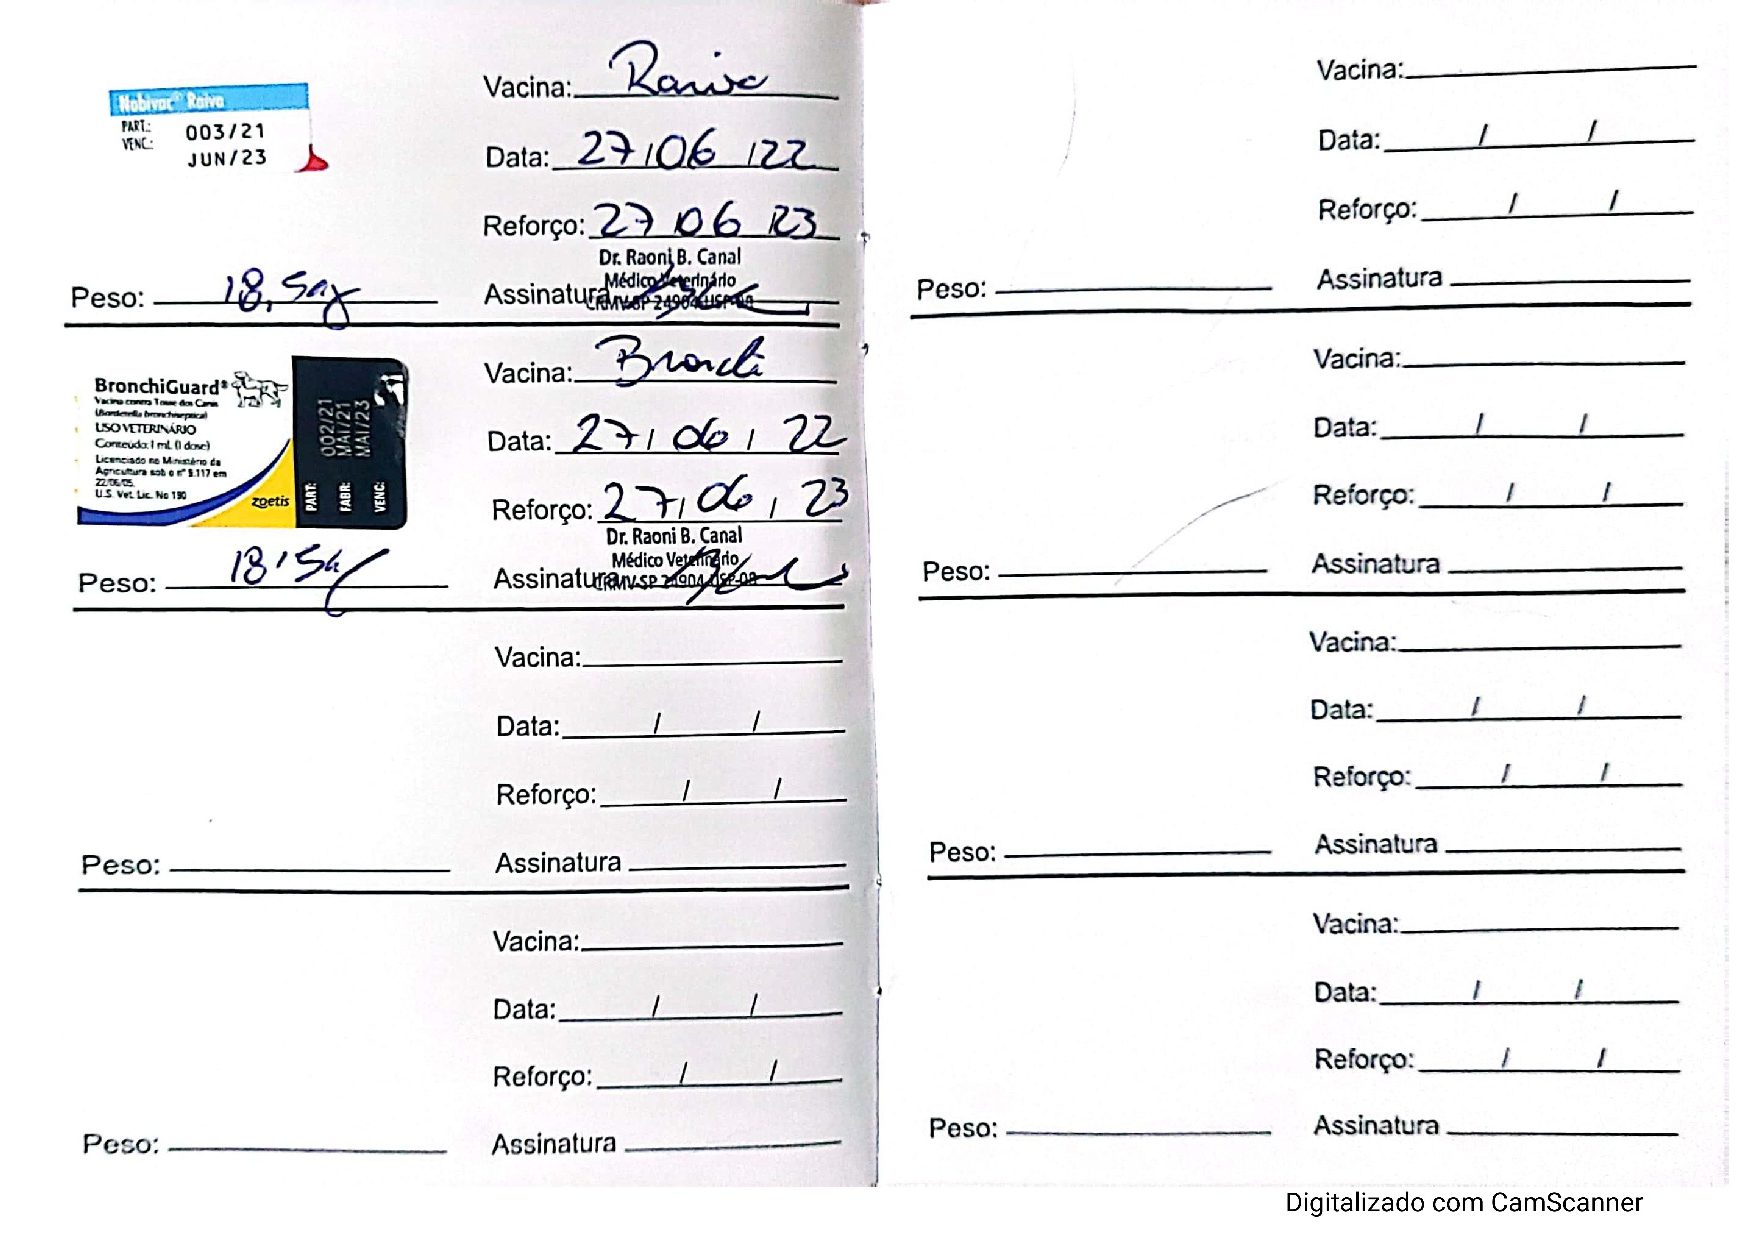 Nobivac® Raiva
PART.: 003/21
VENC.: JUN/23
Vacina: Raiva
Data: 27/06/22
Reforço: 27 06 23
Dr. Raoni B. Canal
Médico Veterinário
CRMV-SP 24904 USP-08
Peso: 18,5
Assinatura
BronchiGuard®
Vacina contra Tosse dos Canis
(Bordetella bronchiseptica)
USO VETERINÁRIO
Conteúdo: 1 mL (1 dose)
Licenciado no Ministério da
Agricultura sob o nº 9.117 em
22/06/05.
U.S. Vet. Lic. No 190
zoetis
PART: 002/21
FABR: MAI/21
VENC: MAI/23
Vacina: Bronchi
Data: 27/06/22
Reforço: 27/06/23
Dr. Raoni B. Canal
Médico Veterinário
CRMV-SP 24904 USP-08
Peso: 18,5
Assinatura
Vacina:
Data: / /
Reforço: / /
Peso:
Assinatura
Vacina:
Data: / /
Reforço: / /
Peso:
Assinatura
Vacina:
Data: / /
Reforço: / /
Peso:
Assinatura
Vacina:
Data: / /
Reforço: / /
Peso:
Assinatura
Vacina:
Data: / /
Reforço: / /
Peso:
Assinatura
Vacina:
Data: / /
Reforço: / /
Peso:
Assinatura
Digitalizado com CamScanner